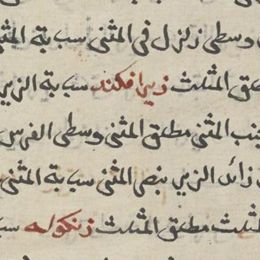 وسطى زلزل فى المثنى سبابة المثنى
مطلق المثلث زيرافكند سبابة الزير
مجنب المثنى مطلق المثنى وسطى الفرس
زائد الزير بنصر المثنى سبابة المثنى
المثلث مطلق المثلث زنكوله